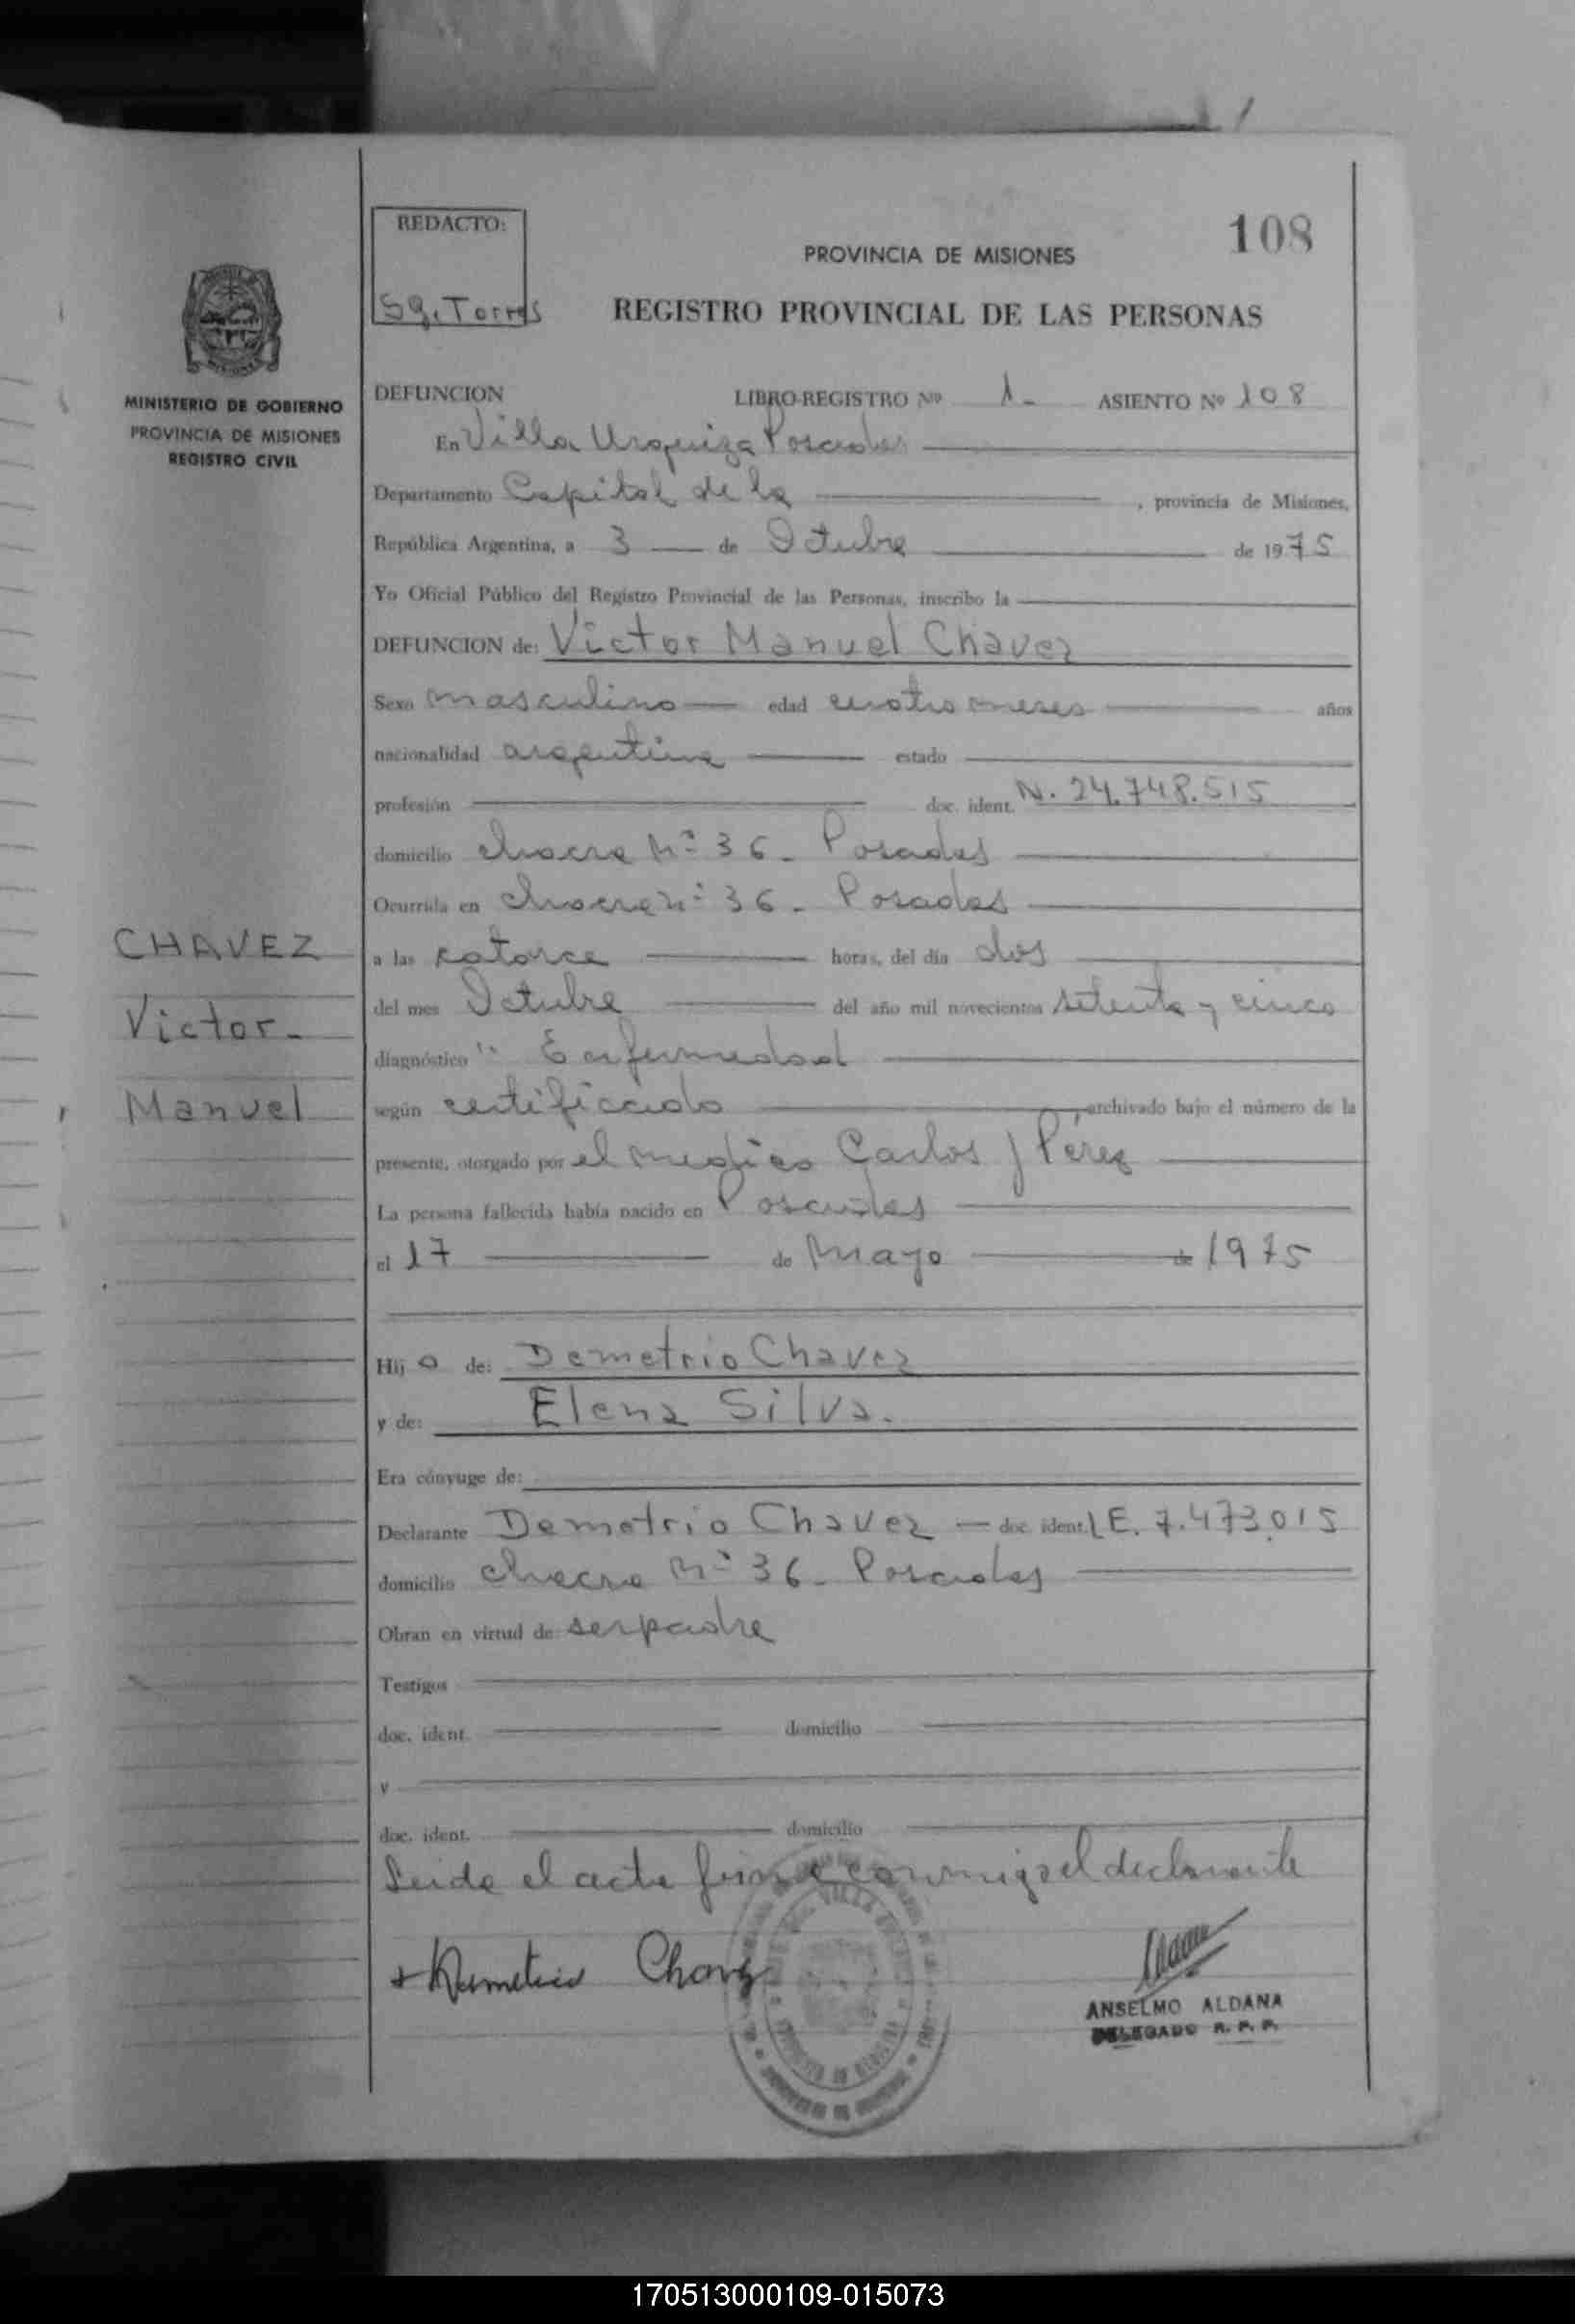 REDACTO:
Sg. Torres
108
PROVINCIA DE MISIONES
REGISTRO PROVINCIAL DE LAS PERSONAS
MINISTERIO DE GOBIERNO
PROVINCIA DE MISIONES
REGISTRO CIVIL
DEFUNCION LIBRO-REGISTRO Nº 1- ASIENTO Nº 108
En Villa Urquiza Posadas
Departamento Capital de la , provincia de Misiones,
República Argentina, a 3 de Octubre de 1975
Yo Oficial Público del Registro Provincial de las Personas, inscribo la
DEFUNCION de: Victor Manuel Chavez
Sexo masculino edad cuatro meses años
nacionalidad argentina estado
profesión doc. ident. N. 24.748.515
domicilio chacra Nº 36- Posadas
Ocurrida en chacra nº 36- Posadas
a las catorce horas, del día dos
del mes Octubre del año mil novecientos setenta y cinco
diagnóstico Enfermedad
según certificado , archivado bajo el número de la
presente, otorgado por el medico Carlos J Pérez
La persona fallecida había nacido en Posadas
el 17 de Mayo de 1975
CHAVEZ
Victor-
Manuel
Hijo de: Demetrio Chavez
y de: Elena Silva.
Era cónyuge de:
Declarante Demetrio Chavez - doc. ident. LE. 7.473.015
domicilio chacra Nº 36- Posadas
Obran en virtud de ser padre
Testigos
doc. ident. domicilio
y
doc. ident. domicilio
Leida el acta firma conmigo el declarante
+ Demetrio Chavez
ANSELMO ALDANA
DELEGADO R. P. P.
170513000109-015073